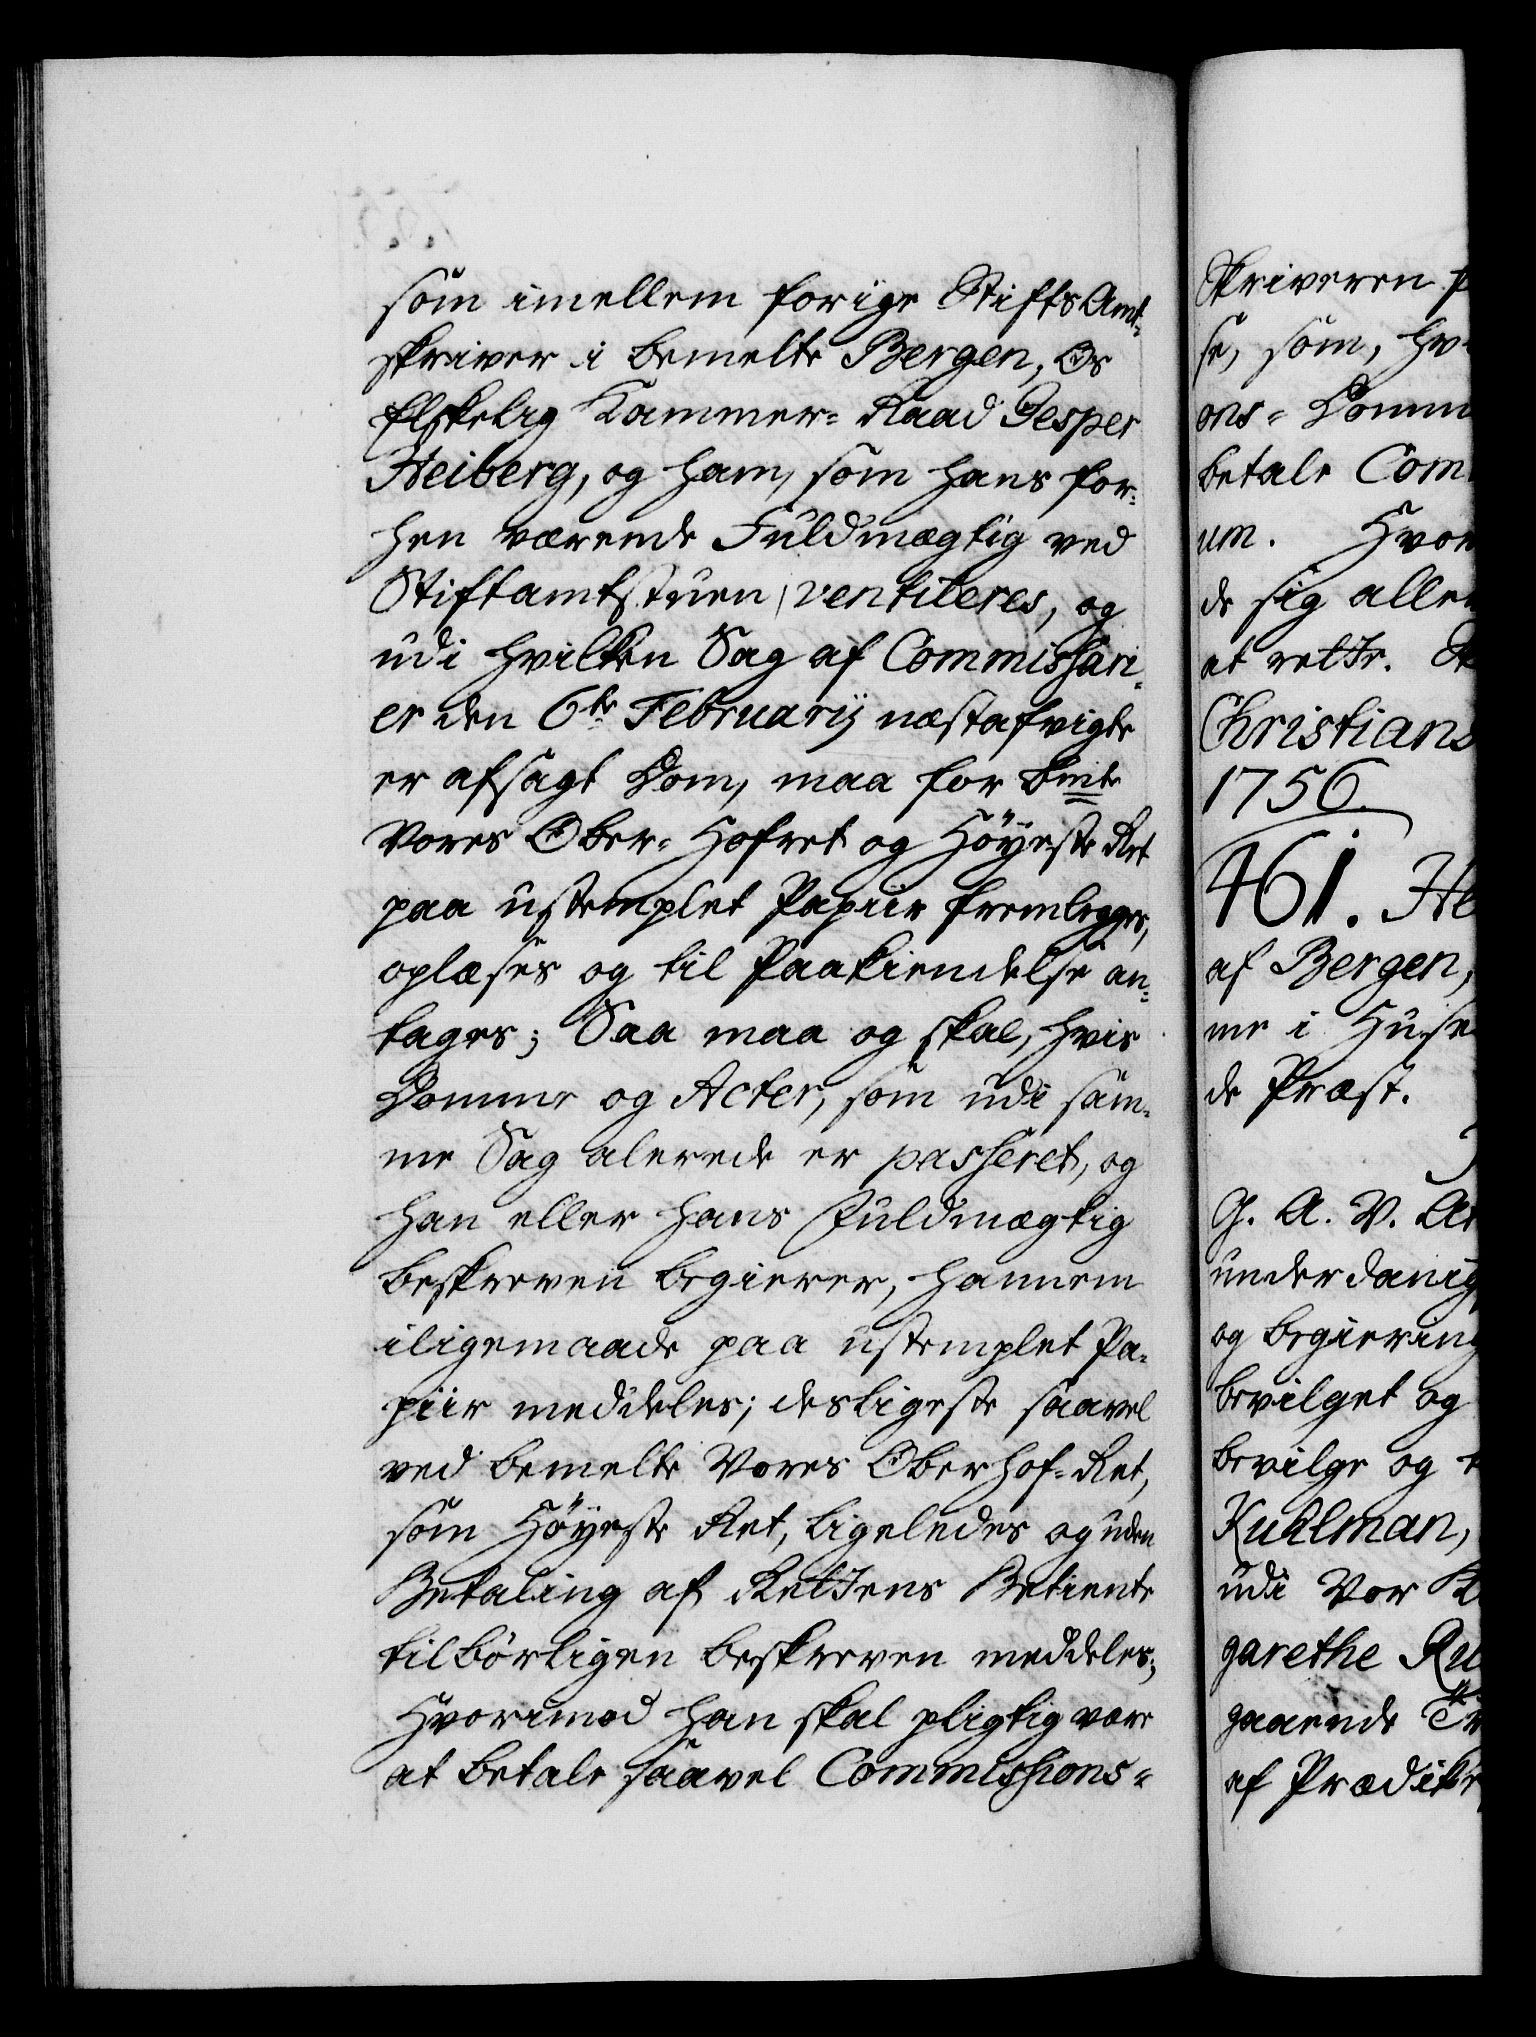 som imellem forige Stifts Amt-
skriver i bemelte Bergen, Os
Elskelig Kammer-Raad Jesper
Heiberg, og ham, som hans for-
hen værende Fuldmægtig ved
Stiftamtstuen, ventileres, og
udi hvilken Sag af Commissari-
er den 6te Februarij næstafvigte
er afsagt Dom, maa for bmte
Vores Ober-Hofret og Höyeste Ret
paa ustemplet Papiir fremlegges,
oplæses og til Paakiendelse an-
tages; Saa maa og skal, hvis
Domme og Acter, som udi sam-
me Sag alerede er passeret, og
han eller hans Fuldmægtig
beskreven begierer, hannem
iligemaade paa ustemplet Pa-
piir meddeles; desligeste saavel
ved bemelte Vores Oberhof-Ret,
som Höyeste Ret, ligeledes og uden
Betaling af Rettens Betiente
tilbørligen beskreven meddeles;
Hvorimod han skal pligtig være
at betale saavel Commissions-
Skriveren
se, som,
ons-
betale
um.
de sig
at rette.
Christians
1756.
461.
af Bergen,
me i
de Præst.
G. A. V.
underdanig
og begiering
bevilget og
bevilge og
Kuhlman,
udi Vor
garethe
gaaende
af